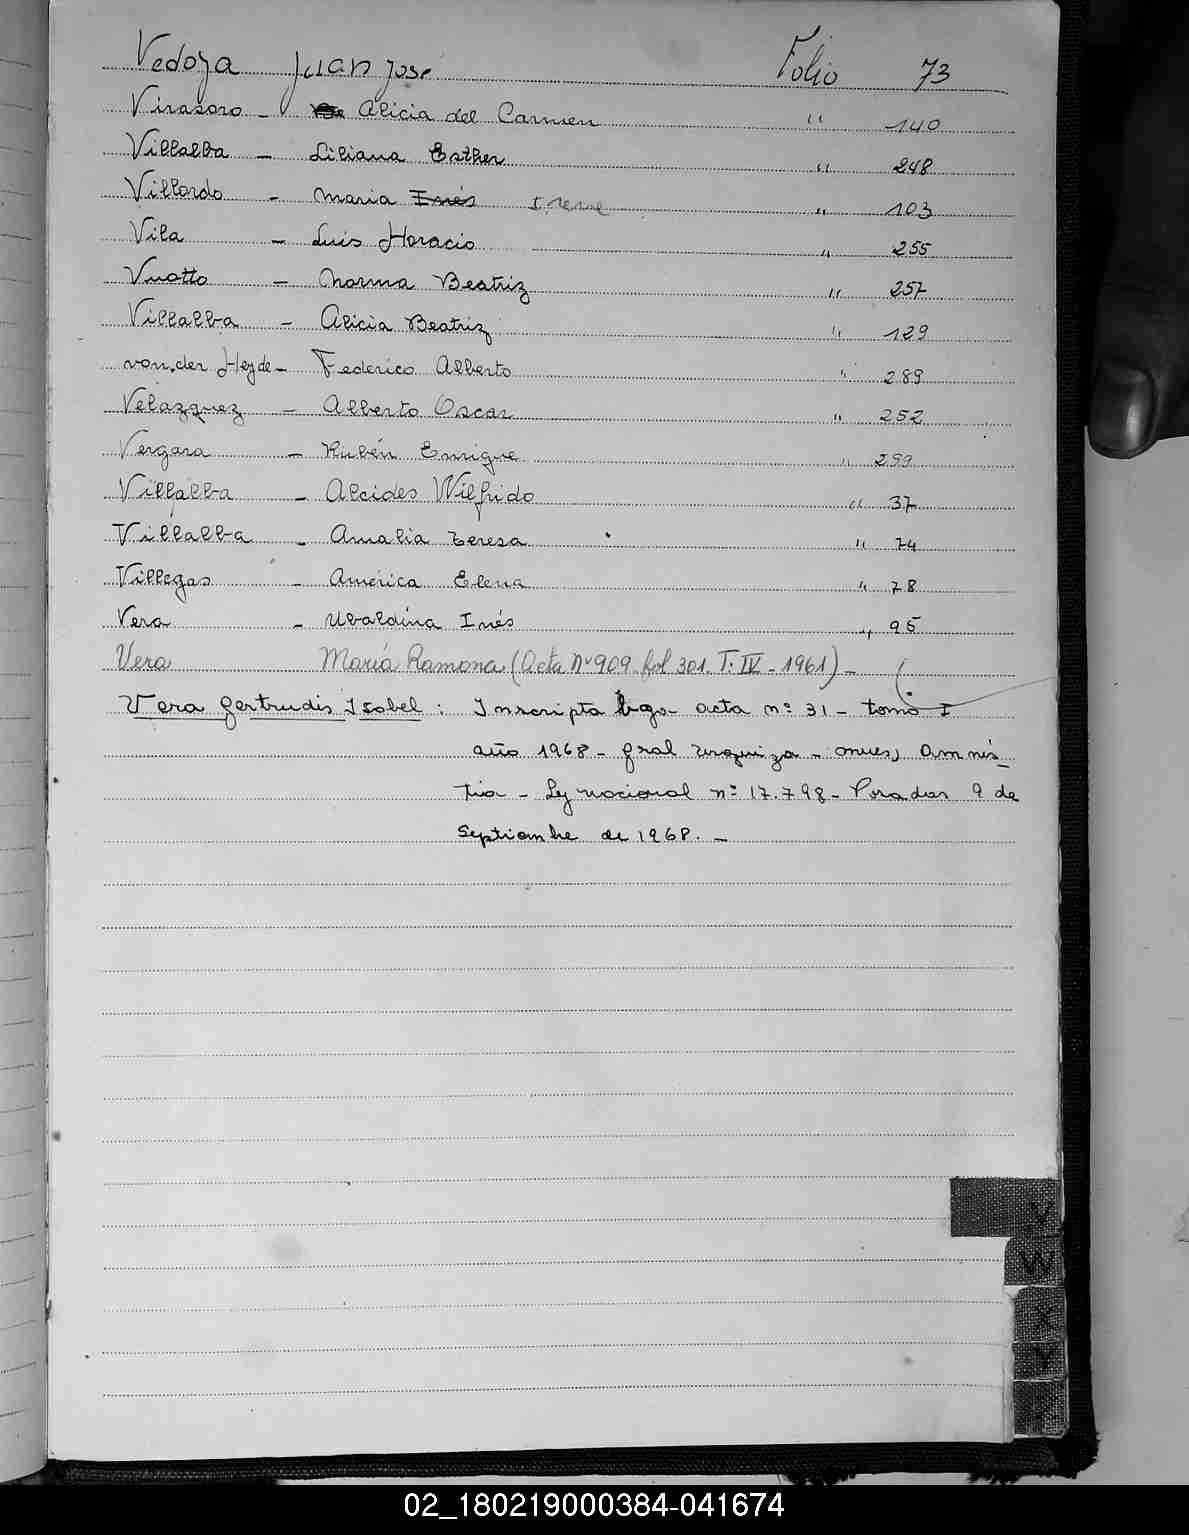 Vedoya Juan José Folio 73
Virasoro - Alicia del Carmen " 140
Villalba - Liliana Esther " 248
Villordo - Maria Inés Irene " 103
Vila - Luis Horacio " 255
Vuotto - Norma Beatriz " 257
Villalba - Alicia Beatriz " 129
von der Heyde - Federico Alberto " 289
Velazquez - Alberto Oscar " 252
Vergara - Rubén Enrique " 299
Villalba - Alcides Wilfrido " 37
Villalba - Amalia Teresa " 74
Villegas - América Elena " 78
Vera - Ubaldina Inés " 95
Vera María Ramona (Acta Nº 909 fol 301. T. IV - 1961) -
Vera Gertrudis Isabel : Inscripta bajo acta nº 31 - tomo I
año 1968 - Gral Urquiza - Mnes, Amnis-
tia - Ley nacional nº 17.798 - Posadas 9 de
Septiembre de 1968. -
V
W
X
Y
Z
02_180219000384-041674